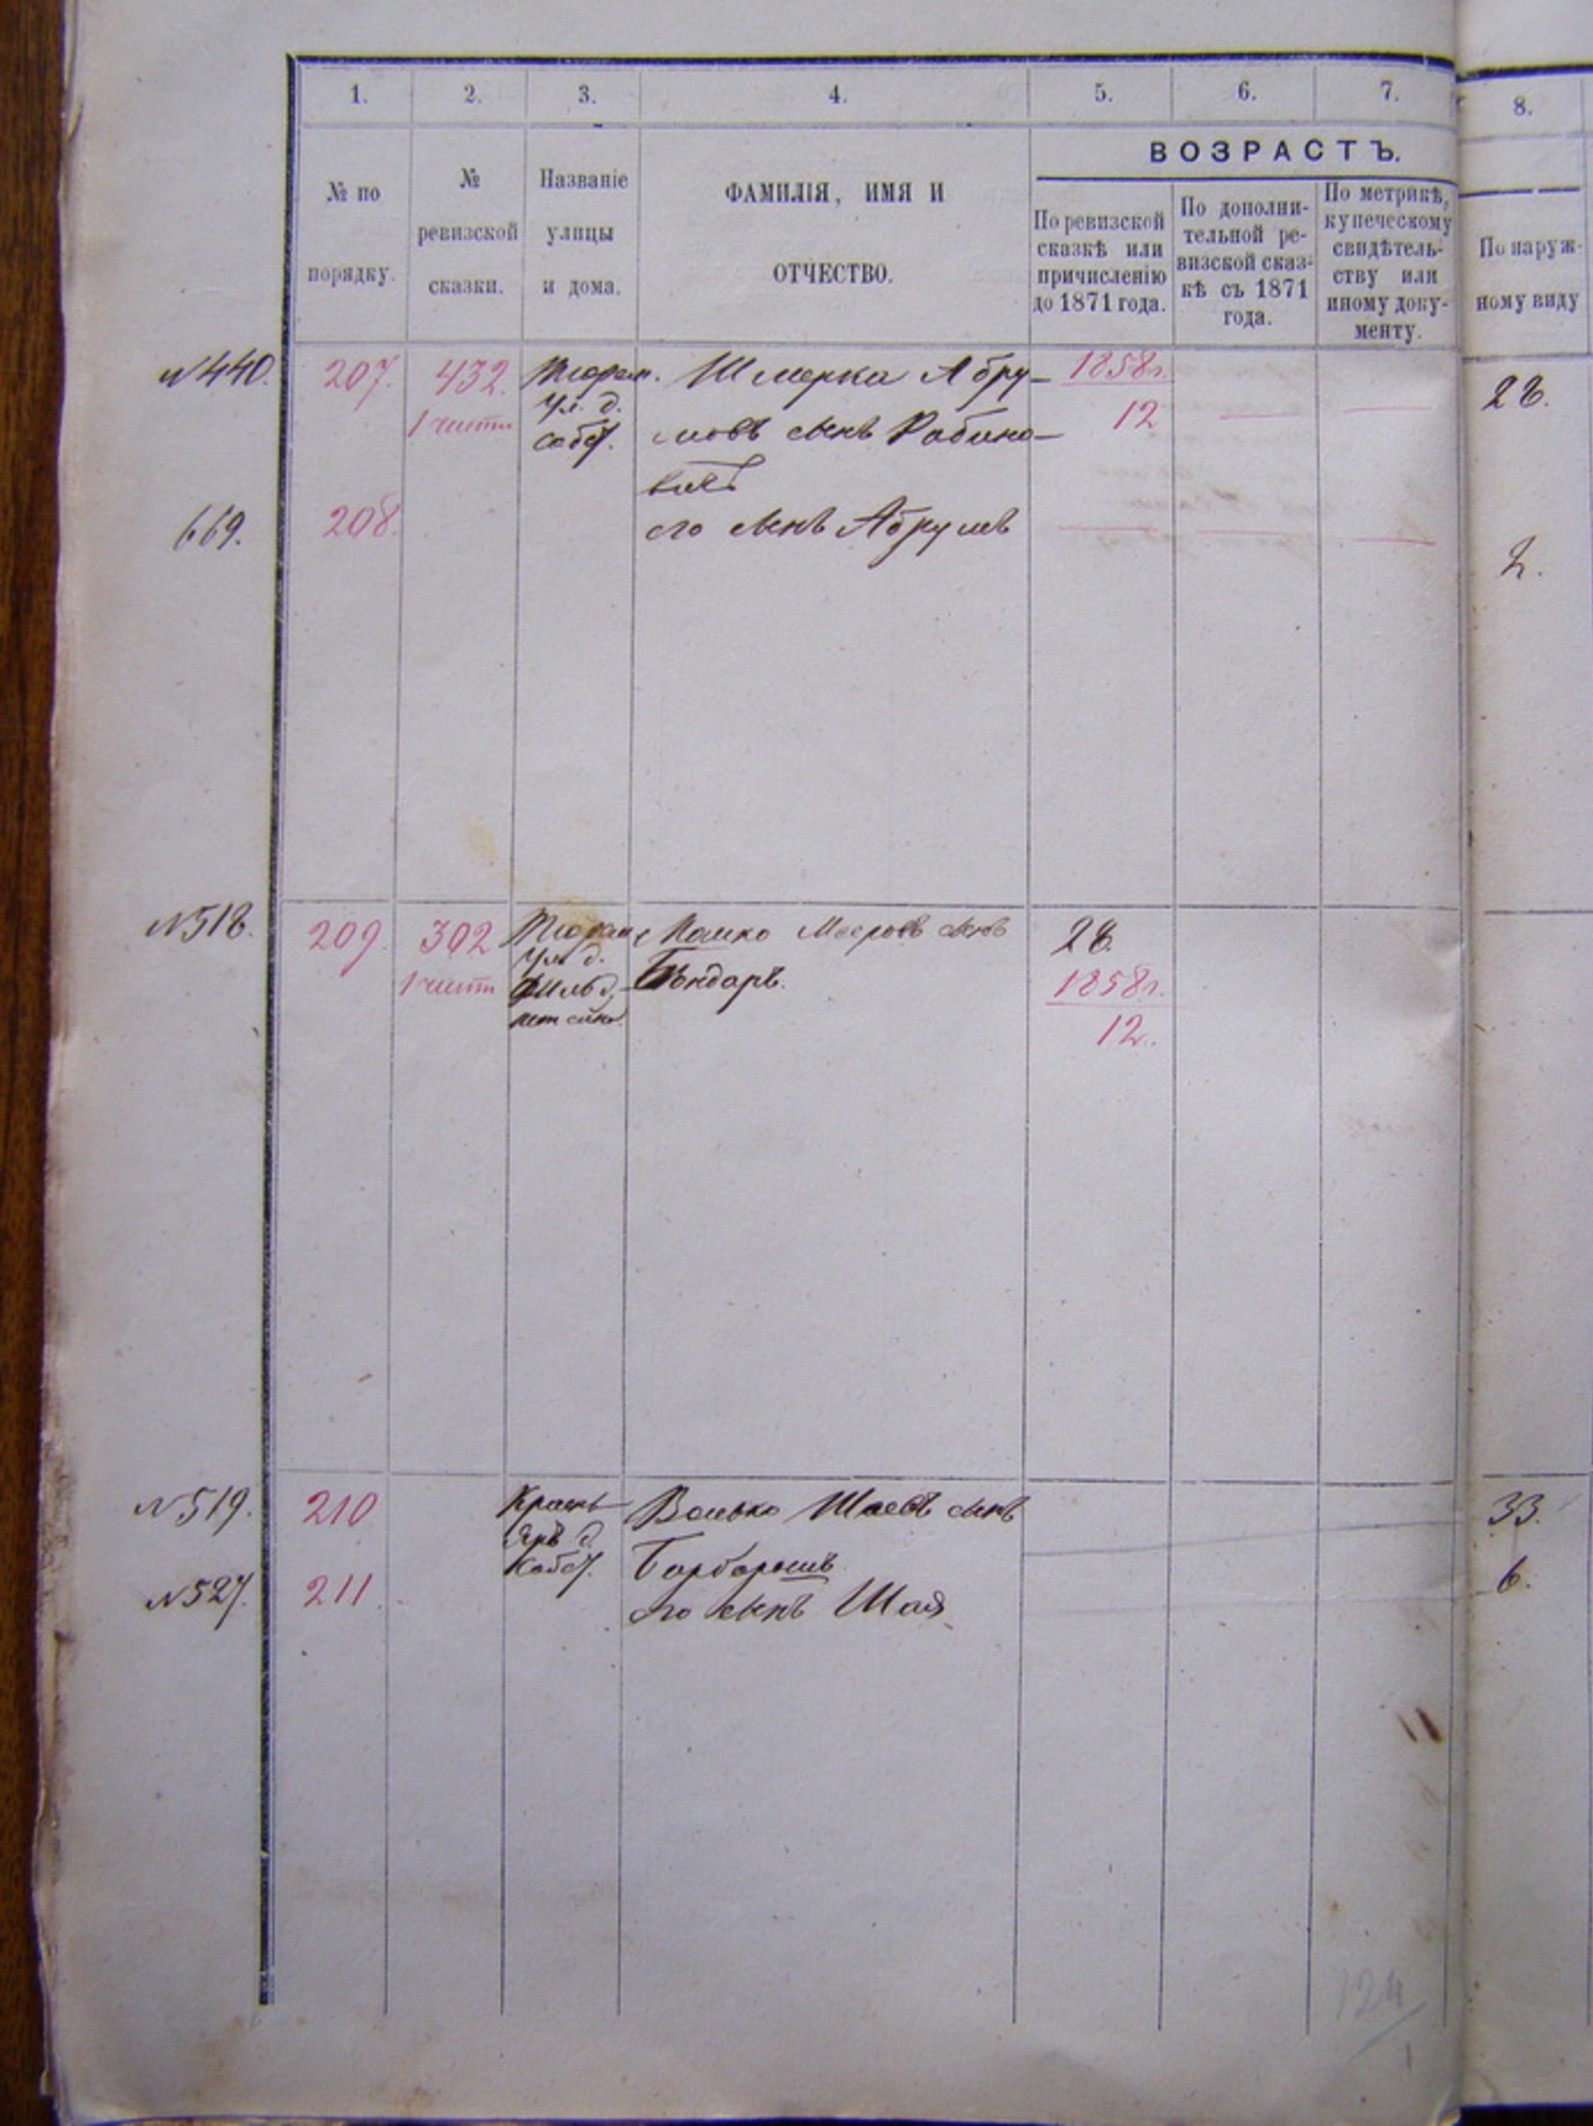 1. 2. 3. 4. 5. 6. 7. 8.
№ по порядку.
№ ревизской сказки.
Названіе улицы и дома.
ФАМИЛІЯ, ИМЯ И ОТЧЕСТВО.
ВОЗРАСТЪ.
По ревизской сказкѣ или причисленію до 1871 года.
По дополнительной ревизской сказкѣ съ 1871 года.
По метрикѣ, купеческому свидѣтельству или иному документу.
По наружному виду
№440. 207. 432. Тюрем. Шмерка Абру- 1858г. 28.
1 части ул. д. мовъ сынъ Рабино- 12
собст. вичъ
669. 208. его сынъ Абрумъ 2.
№518. 209. 302 Мееровъ сынъ 28.
1 части ул. д. Бондарь. 1858г.
12.
№519. 210 Волько Шаевъ сынъ 33.
Яръ д. собст. Барбарошъ
№527. 211. его сынъ Шая 6.
124
1